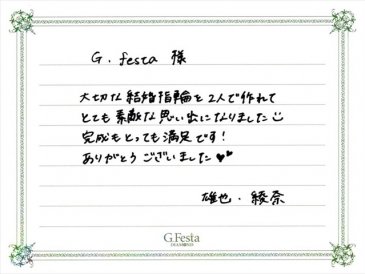 G. festa 様
大切な結婚指輪を2人で作れて
とても素敵な思い出になりました☺
完成もとっても満足です!
ありがとうございました♥♥
雄也・綾奈
G.Festa
DIAMONDS